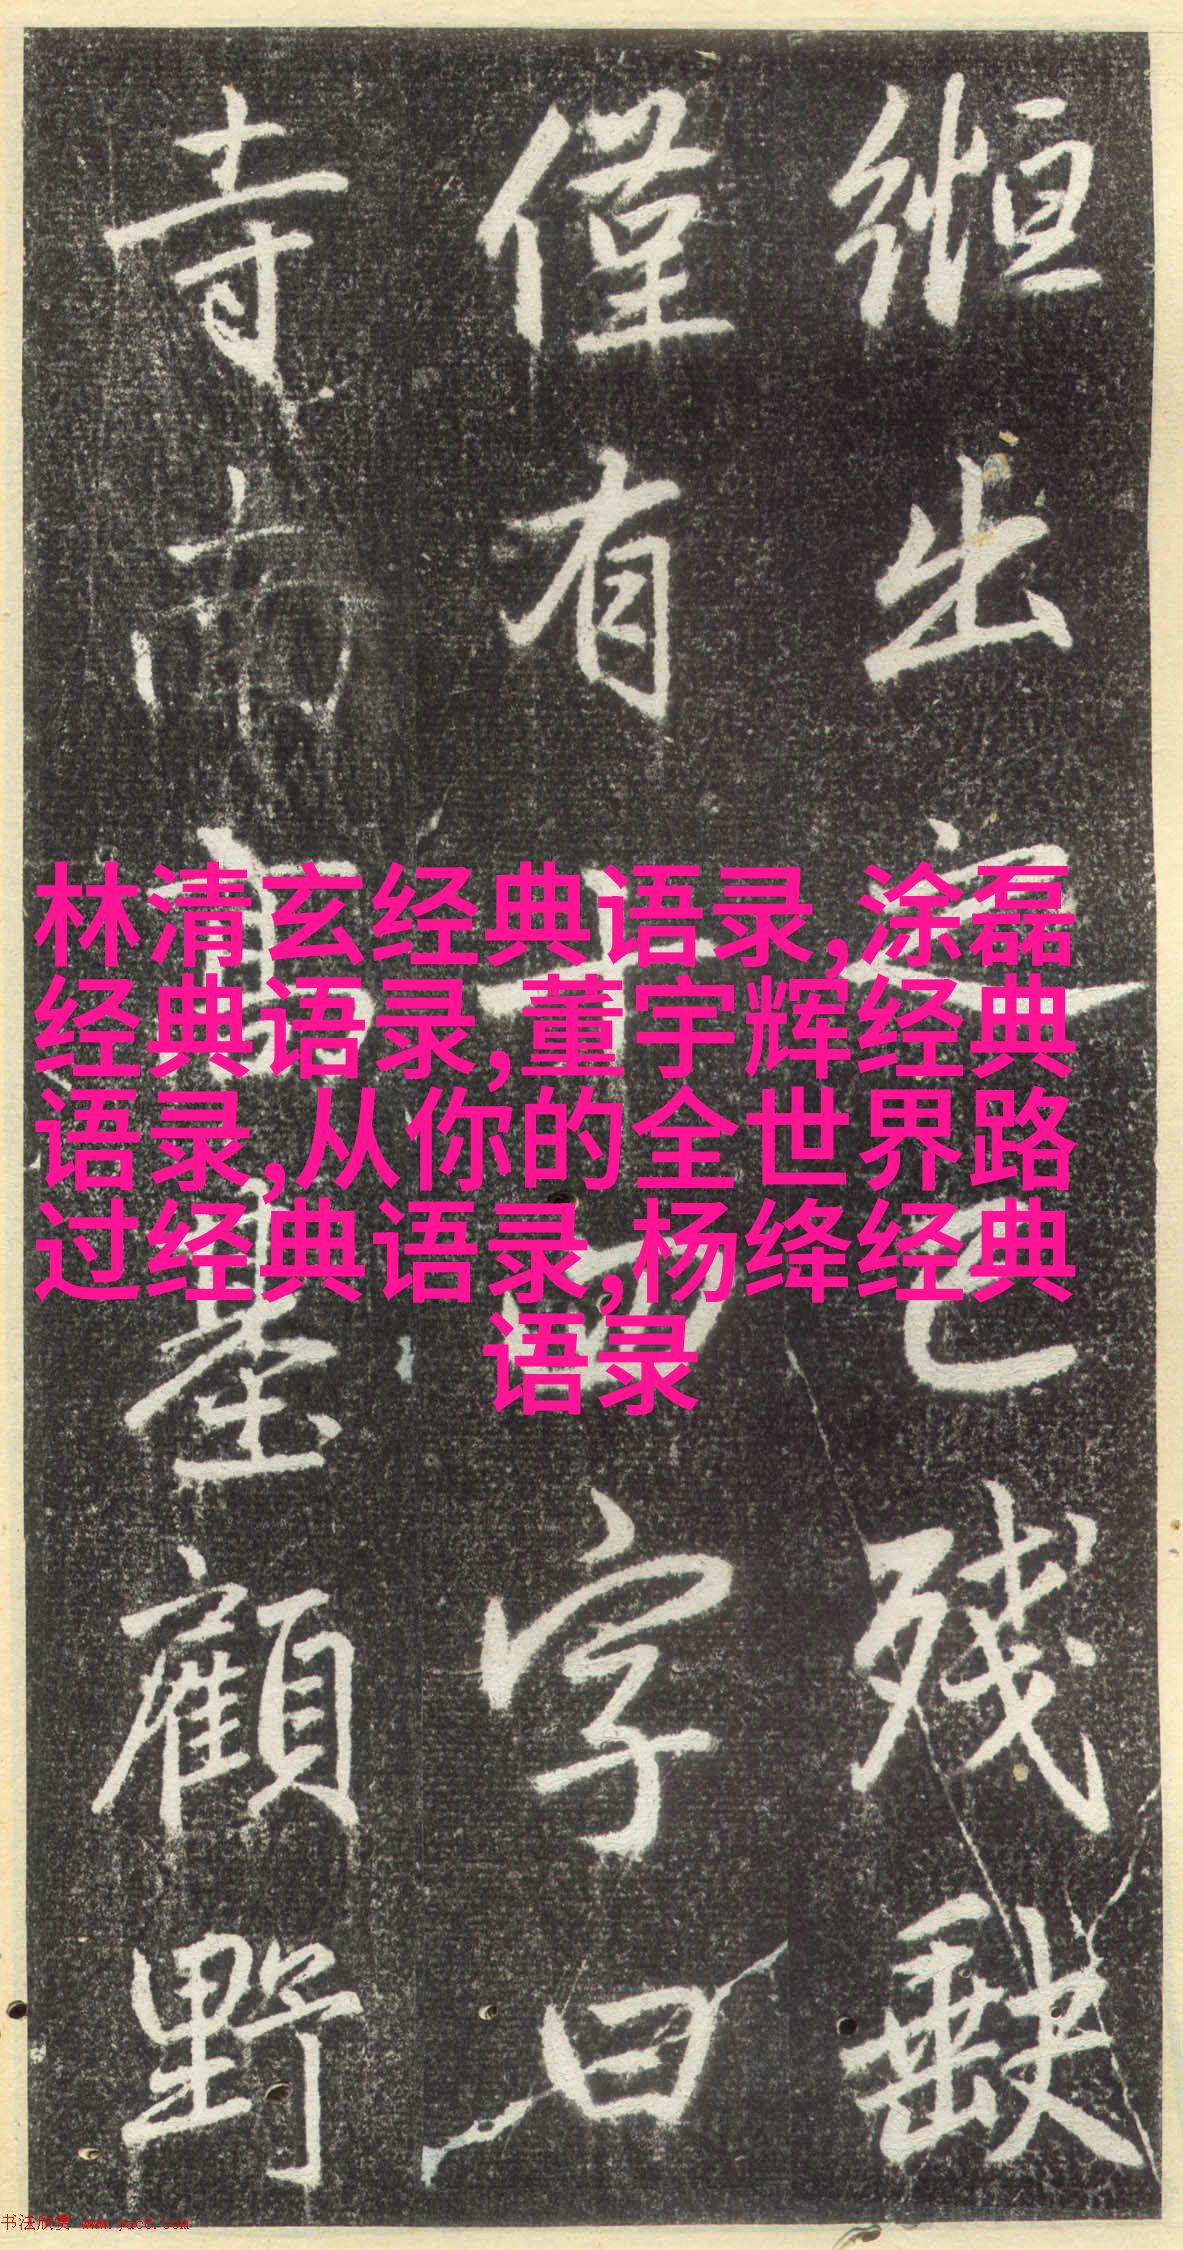 林清玄经典语录,涂磊
经典语录,董宇辉经典
语录,从你的全世界路
过经典语录,杨绛经典
语录
縆出之已残缺
僅有十四字曰
寺南高基顧野
书法欣赏 www.yac8.com